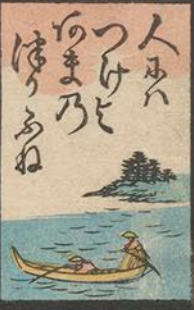 人には
つげよ
あまの
つりふね